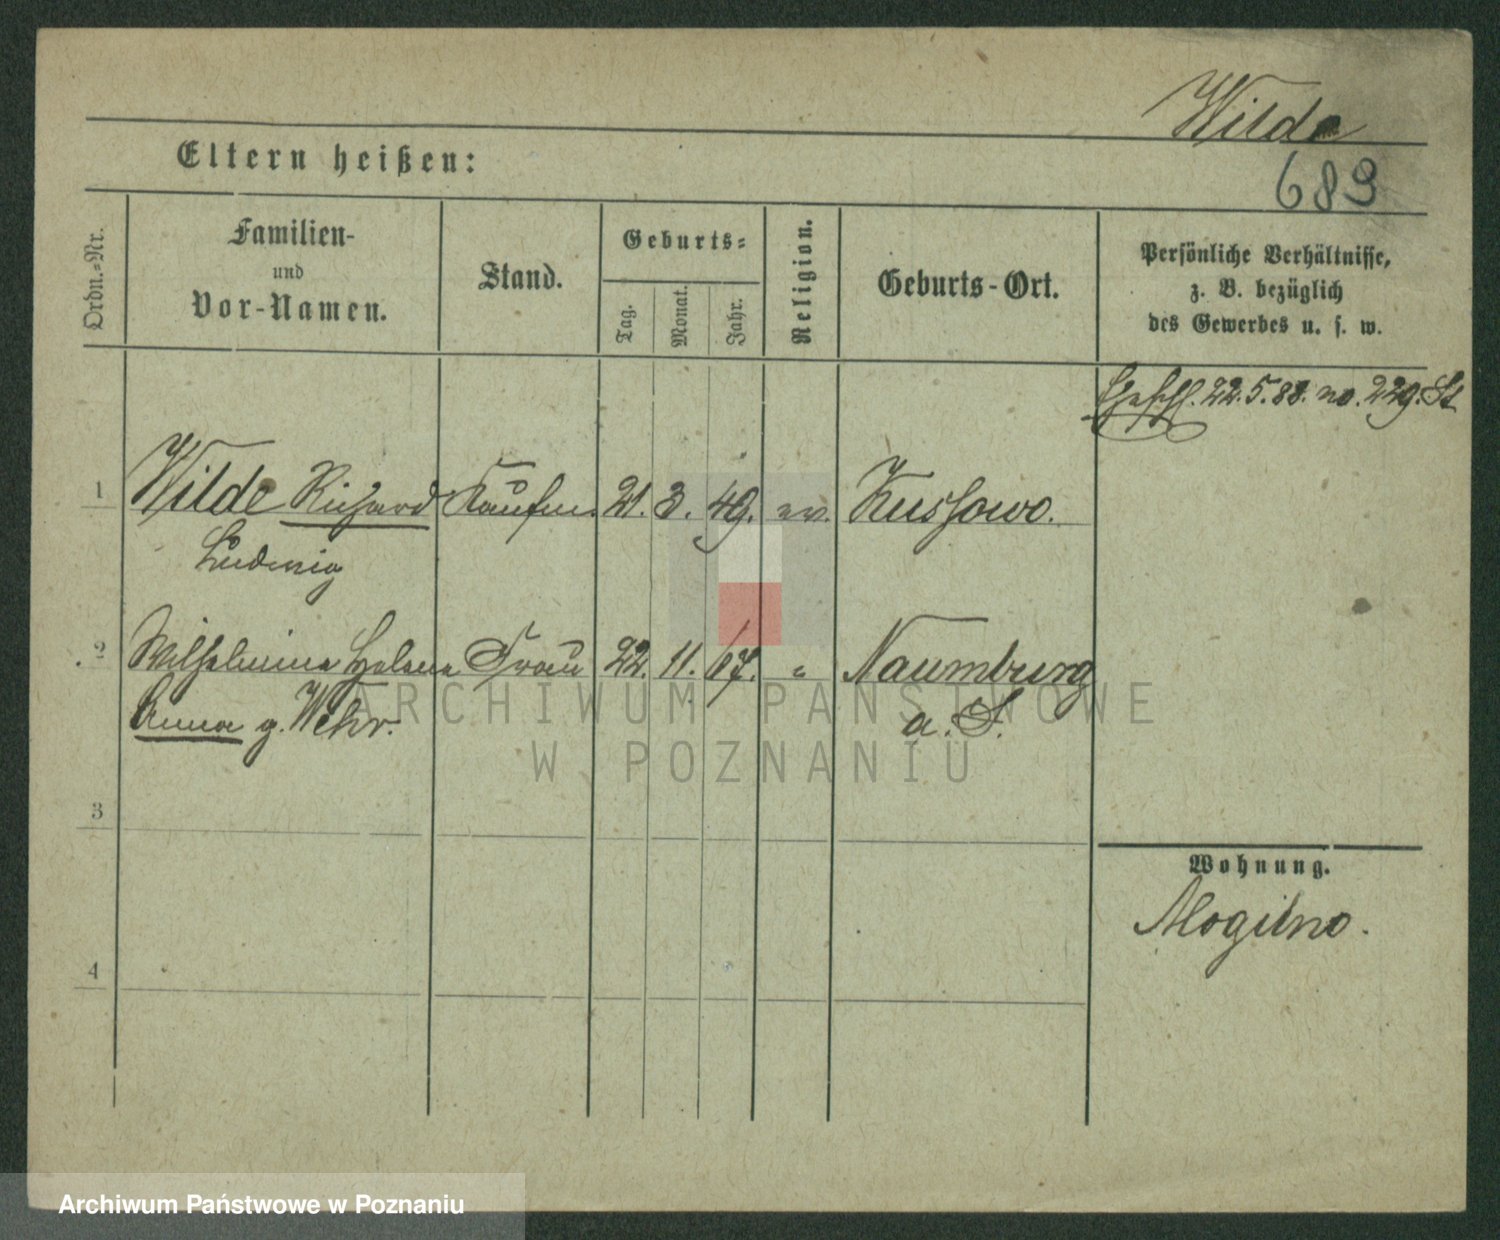 Wilde
Eltern heißen:
689
Ordn.=Nr.
Familien-
und
Vor-Namen.
Stand.
Geburts=
Tag.
Monat.
Jahr.
Religion.
Geburts-Ort.
Persönliche Verhältnisse,
z. B. bezüglich
des Gewerbes u. s. w.
22.5.88. no. 229. St
1 Wilde Richard Kaufm. 21. 3. 49. ev. Kussowo.
Ludwig
2 Wilhelmine Helene Frau 22. 11. 67. " Naumburg
Anna g. Wehr. a. S.
ARCHIWUM PAŃSTWOWE
W POZNANIU
3
Wohnung.
Mogilno.
4
Archiwum Państwowe w Poznaniu